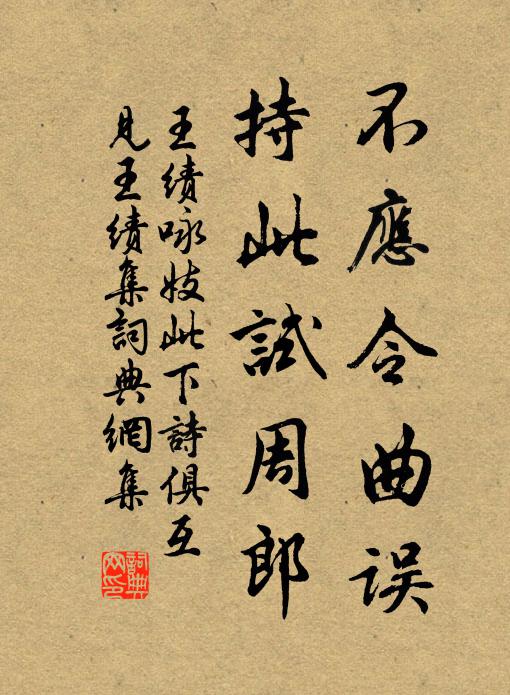 不應令曲误
持此試周郎
王績咏妓此下詩俱互
見王績集詞典網集
詞典網印